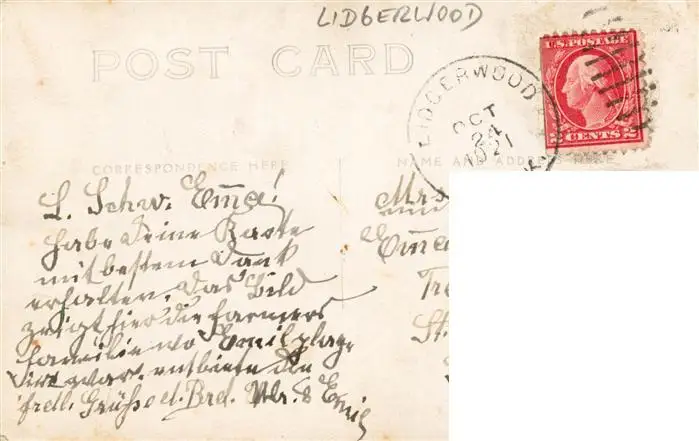 LIDGERWOOD
POST CARD
U.S. POSTAGE
2 CENTS 2
LIDGERWOOD
OCT
24
1921
CORRESPONDENCE HERE
NAME AND ADDRESS HERE
L. Schw. Em̅a!
habe Deine Karte
mit bestem Dank
erhalten. Das Bild
zeigt hier die Farmers
familie wo Emil
war. entbiete Dir
frdl. Grüße d. Brd. & Emil
Mrs
Em̅a
St.